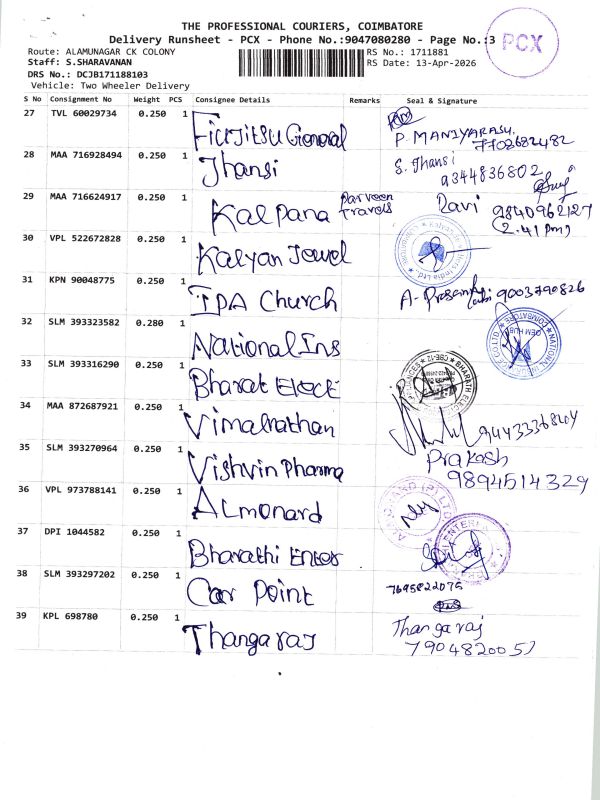 THE PROFESSIONAL COURIERS, COIMBATORE
Delivery Runsheet - PCX - Phone No.:9047080280 - Page No.:3
PCX
Route: ALAMUNAGAR CK COLONY
RS No.: 1711881
Staff: S.SHARAVANAN
RS Date: 13-Apr-2026
DRS No.: DCJB171188103
Vehicle: Two Wheeler Delivery
S No Consignment No Weight PCS Consignee Details Remarks Seal & Signature
27 TVL 60029734 0.250 1 Fiurjitsu General P. MANIYARASU. 7702682482
28 MAA 716928494 0.250 1 Jhansi S. Jhansi 9344836802
29 MAA 716624917 0.250 1 Kalpana Parveen Travels Ravi 9840962127 (2.41 pm)
30 VPL 522672828 0.250 1 Kalyan Jewel
31 KPN 90048775 0.250 1 IPA Church 9003790826
32 SLM 393323582 0.280 1 National Ins
33 SLM 393316290 0.250 1 Bharat Elect
34 MAA 872687921 0.250 1 Vimalnathan
35 SLM 393270964 0.250 1 Vishvin Pharma Prakash 9894514329
36 VPL 973788141 0.250 1 Almonard
37 DPI 1044582 0.250 1 Bharathi Enter
38 SLM 393297202 0.250 1 Car Point 7695822075
39 KPL 698780 0.250 1 Thangaraj Thangaraj